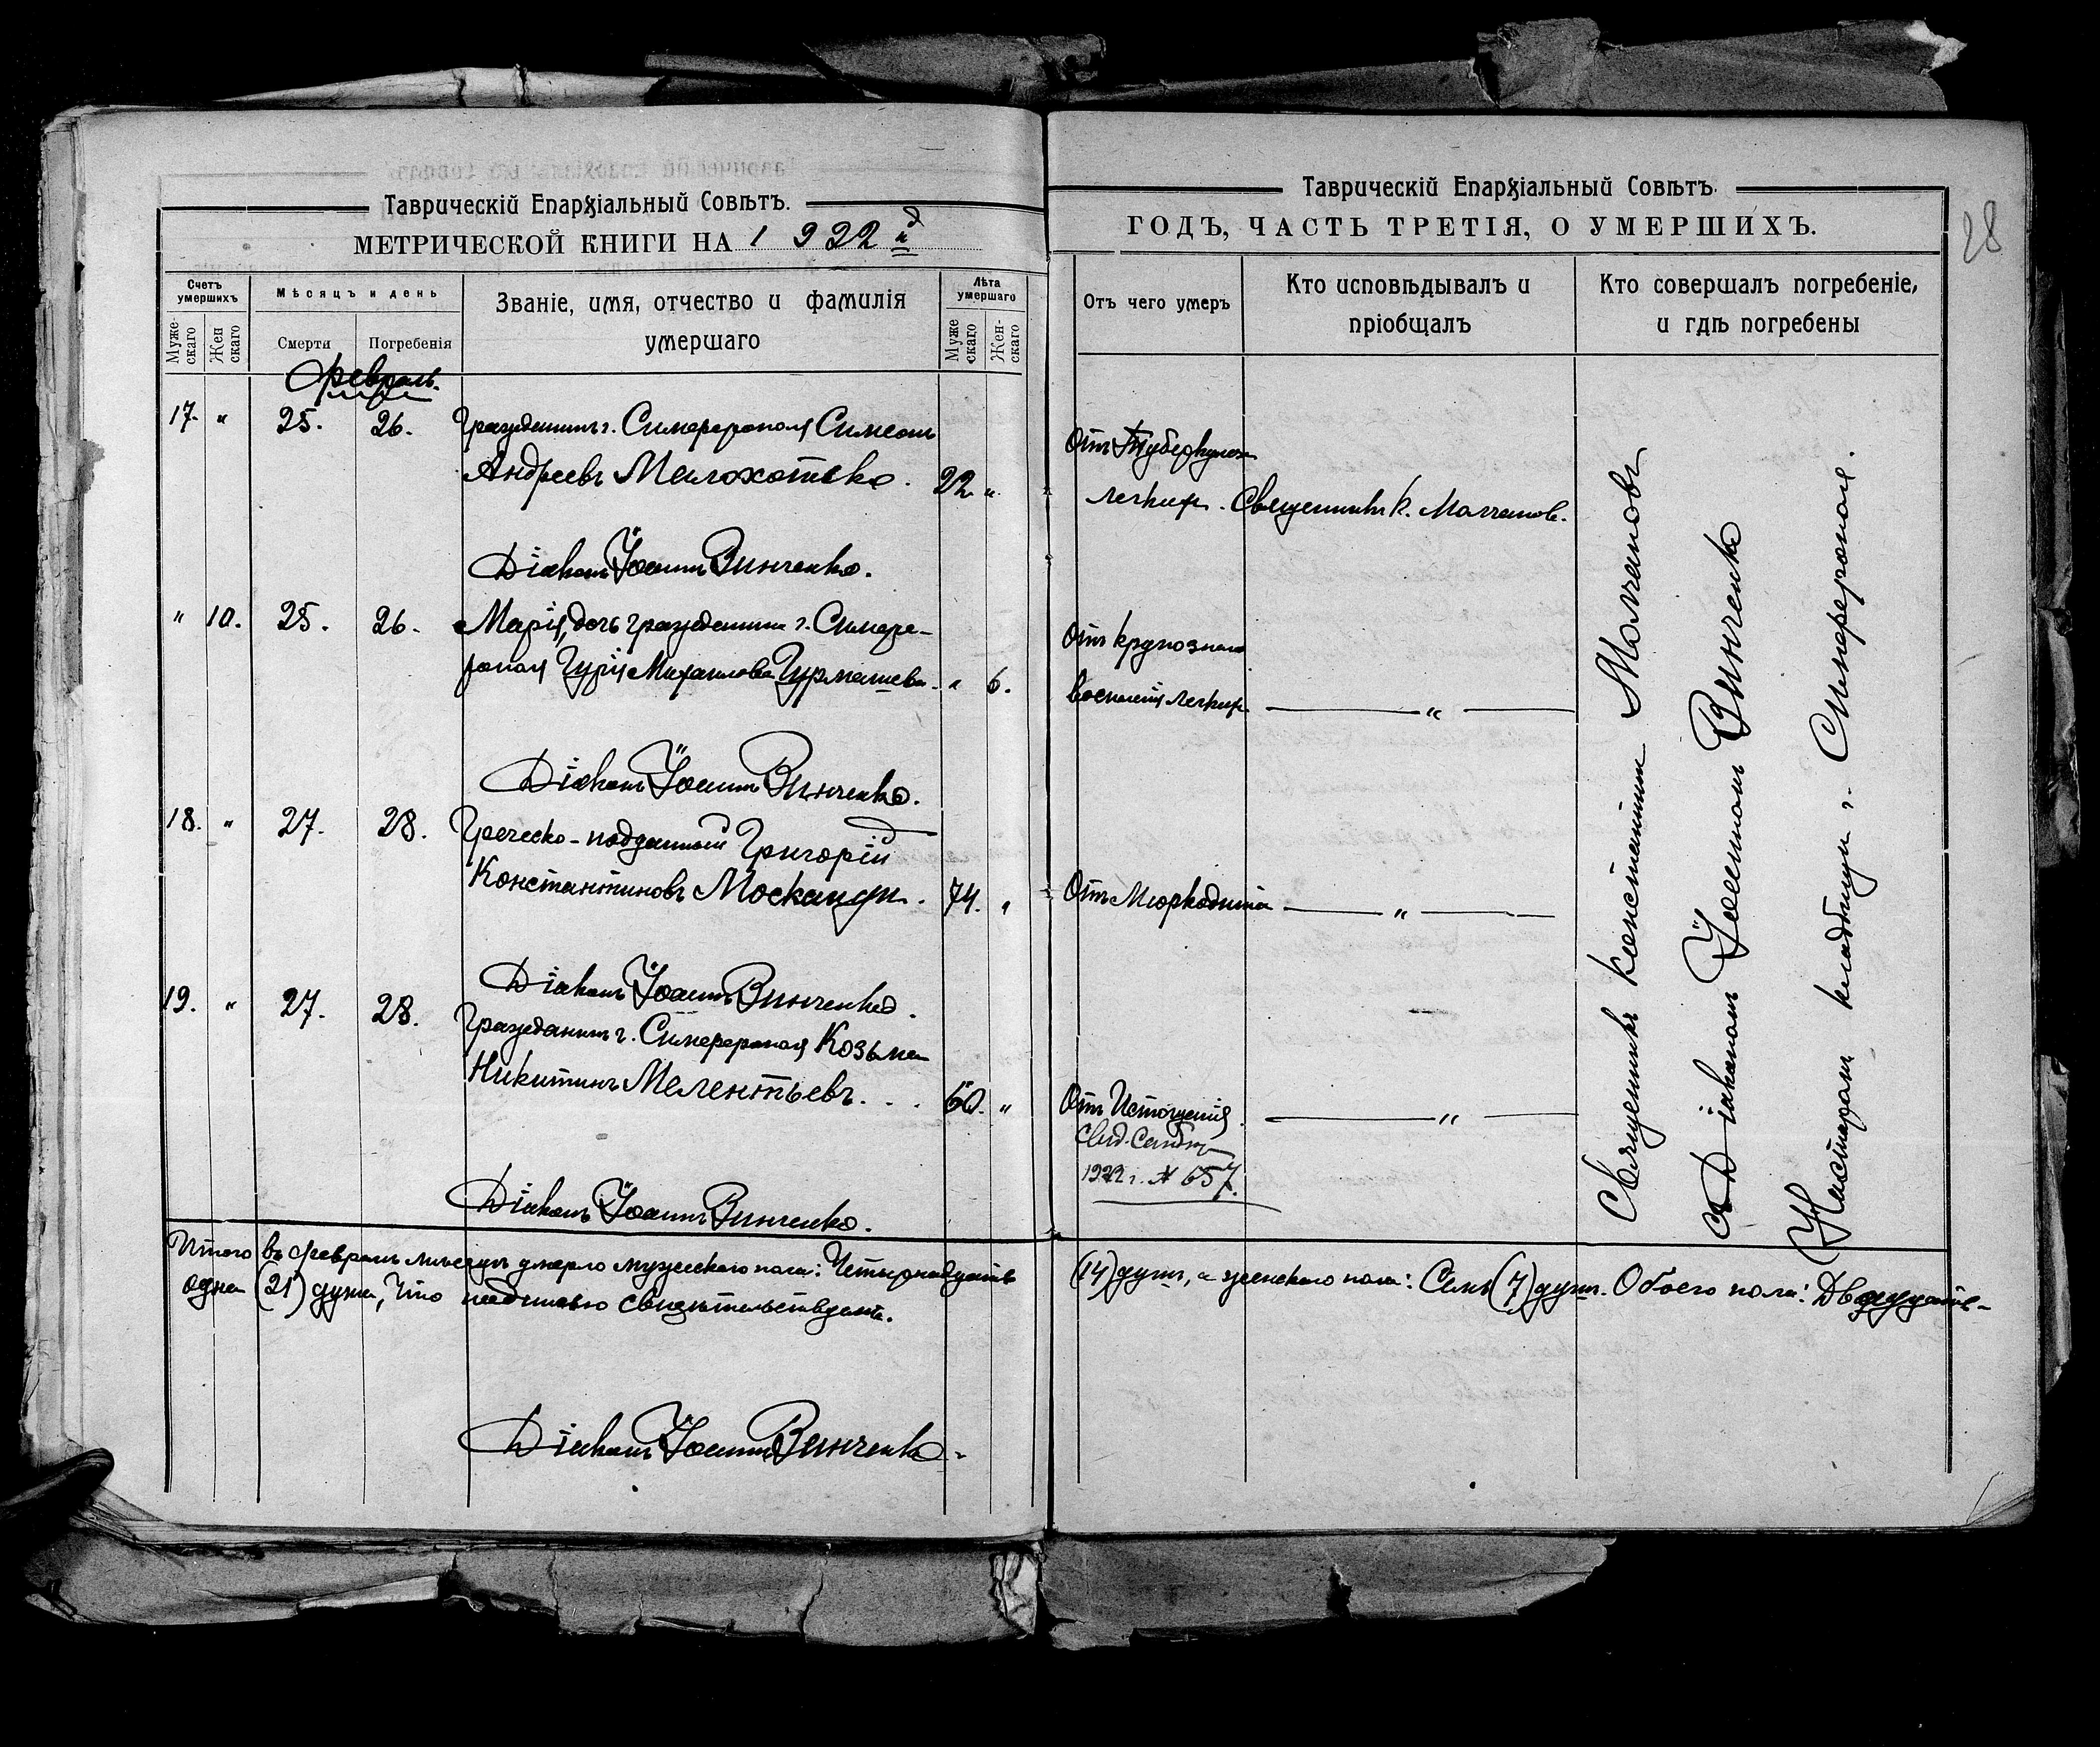 Таврическій Епархіальный Совѣтъ.
МЕТРИЧЕСКОЙ КНИГИ НА 1922 й
Счетъ умершихъ
Мѣсяцъ и день
Званіе, имя, отчество и фамилія умершаго
Лѣта умершаго
Мужескаго
Женскаго
Смерти
Погребенія
Мужескаго
Женскаго
Февраль.
17. " 25. 26. Гражданинъ г. Симферополя Симеонъ
Андреевъ Малохотько. 22 "
Діаконъ Іоаннъ Винченко.
" 10. 25. 26. Марія, дочь гражданина г. Симфе-
рополя Гурія Михаилова Гурмашева. " 6.
Діаконъ Іоаннъ Винченко.
18. " 27. 28. Греческо-подданный Григорій
Константиновъ Москанди. 74. "
Діаконъ Іоаннъ Винченко.
19. " 27. 28. Гражданинъ г. Симферополя Козьма
Никитинъ Мелентьевъ. . . 60. "
Діаконъ Іоаннъ Винченко.
Итого въ февралѣ мѣсяцѣ умерло мужескаго пола: Четырнадцать
одна (21) душа, что подписью свидѣтельствуемъ.
Діаконъ Іоаннъ Винченко.
Таврическій Епархіальный Совѣтъ.
ГОДЪ, ЧАСТЬ ТРЕТІЯ, О УМЕРШИХЪ.
28
Отъ чего умеръ
Кто исповѣдывалъ и пріобщалъ
Кто совершалъ погребеніе, и гдѣ погребены
Отъ Туберкулеза
легкихъ. Священникъ К. Молчановъ.
Отъ крупознаго
воспаленія легкихъ — " —
Отъ Міокардита — " —
Отъ Истощенія — " —
1922 г. № 657.
Священникъ Константинъ Молчановъ
съ Діакономъ Іоанномъ Винченко
На старомъ кладбищѣ г. Симферополя.
(14) душъ, а женскаго пола: Семь (7) душъ. Обоего пола: Двадцать-